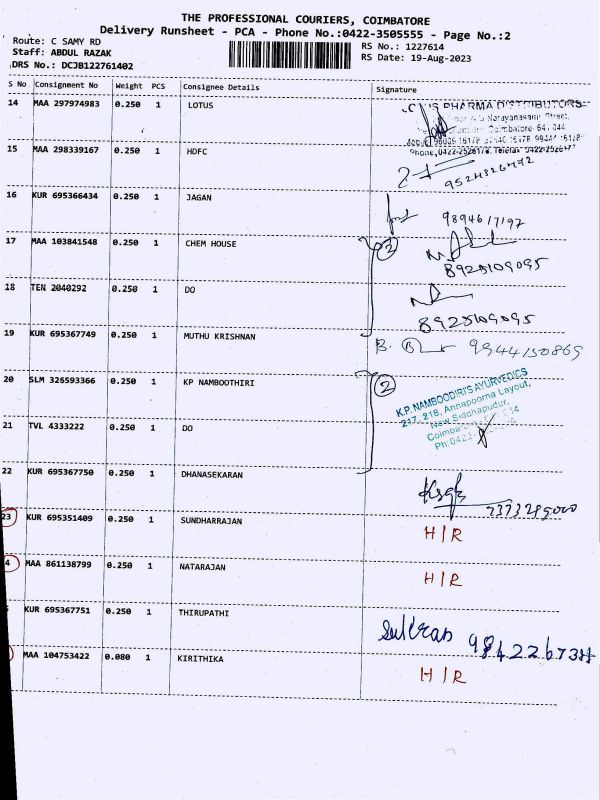 THE PROFESSIONAL COURIERS, COIMBATORE
Delivery Runsheet - PCA - Phone No.:0422-3505555 - Page No.:2
Route: C SAMY RD
RS No.: 1227614
Staff: ABDUL RAZAK
RS Date: 19-Aug-2023
DRS No.: DCJB122761402
S No Consignment No Weight PCS Consignee Details Signature
14 MAA 297974983 0.250 1 LOTUS
PHARMA DISTRIBUTORS
Narayanasami Street,
Coimbatore
15 MAA 298339167 0.250 1 HDFC
9524326472
16 KUR 695366434 0.250 1 JAGAN
9894617197
17 MAA 103841548 0.250 1 CHEM HOUSE
2
8925109095
18 TEN 2040292 0.250 1 DO
8925109095
19 KUR 695367749 0.250 1 MUTHU KRISHNAN
B. 9944150869
20 SLM 326593366 0.250 1 KP NAMBOOTHIRI
2
K.P. NAMBOODIRI'S AYURVEDICS
217, 218, Annapoorna Layout,
New Siddhapudur,
21 TVL 4333222 0.250 1 DO
22 KUR 695367750 0.250 1 DHANASEKARAN
23 KUR 695351409 0.250 1 SUNDHARRAJAN
H/R
4 MAA 861138799 0.250 1 NATARAJAN
H/R
KUR 695367751 0.250 1 THIRUPATHI
MAA 104753422 0.080 1 KIRITHIKA
H/R